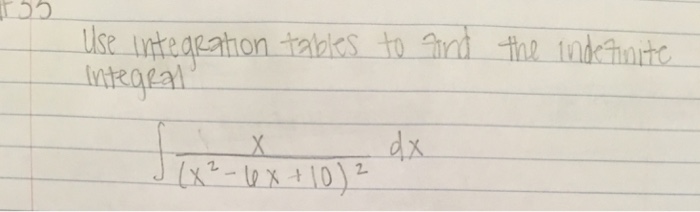 #35
Use integration tables to find the indefinite
integral
∫ x / (x² - 6x + 10)² dx